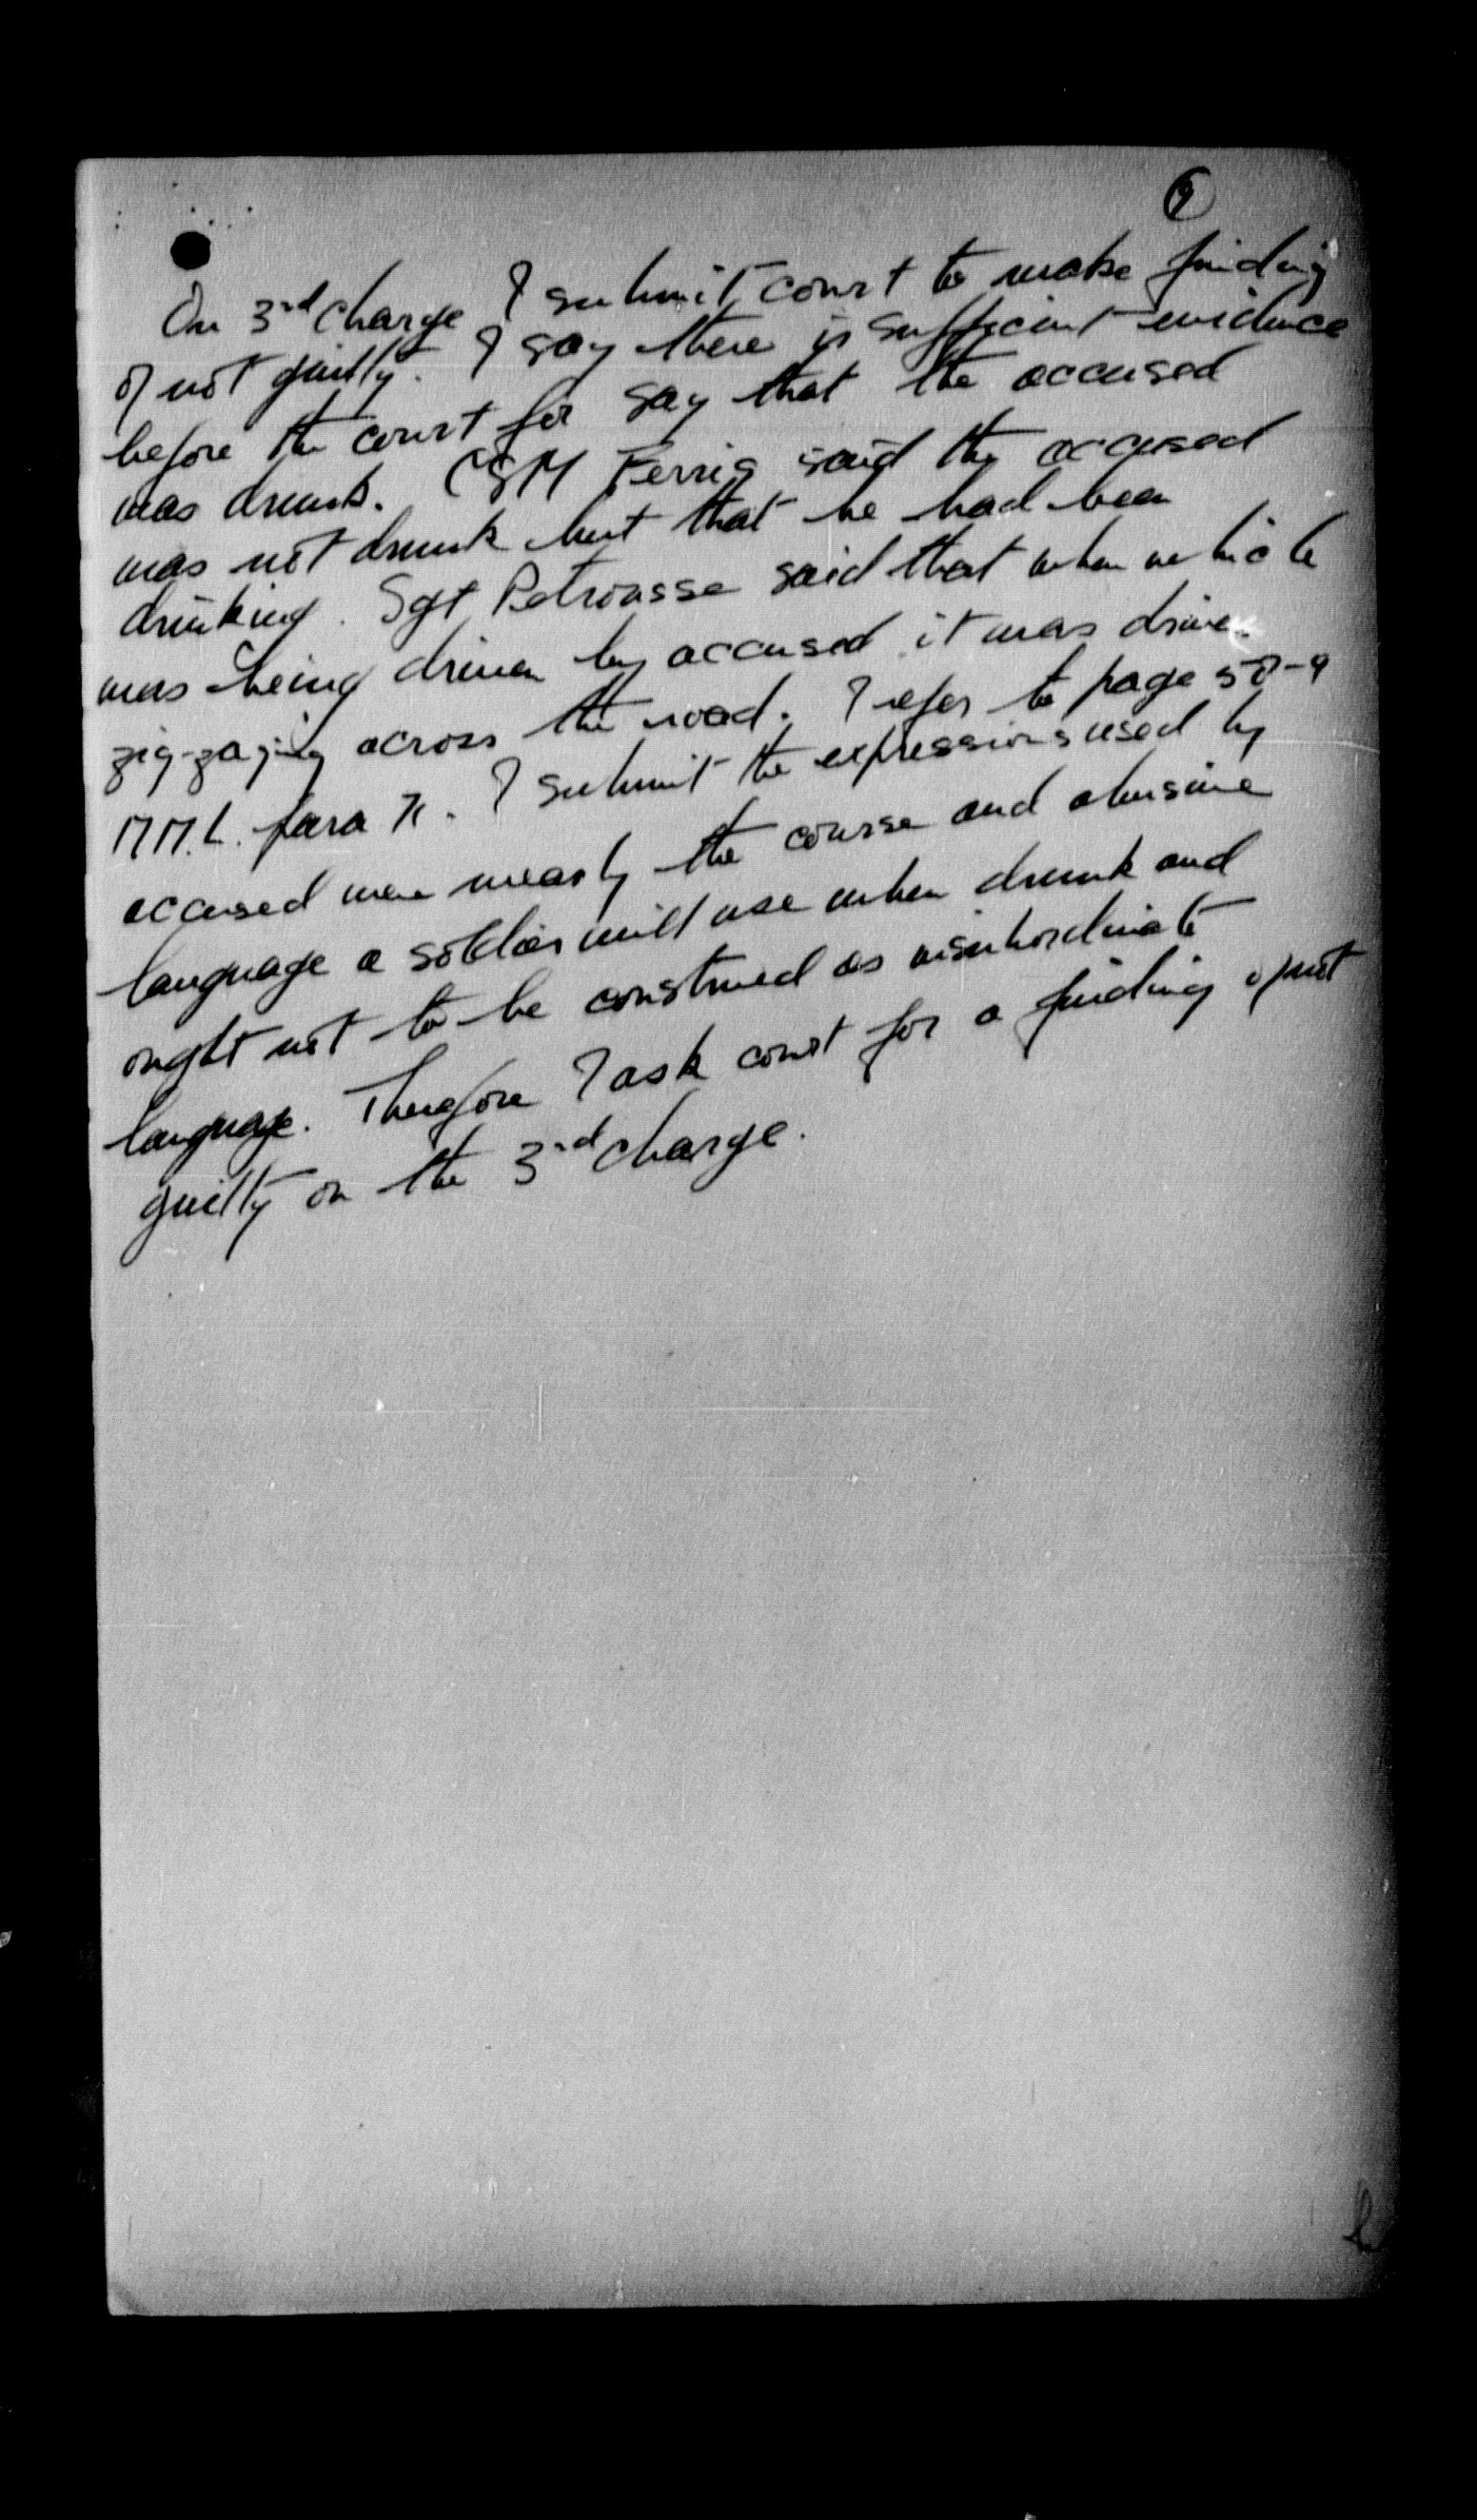 On 3rd charge I submit court to make finding
of not guilty. I say there is sufficient evidence
before the court for say that the accused
was drunk. CSM Ferris said the accused
was not drunk but that he had been
drinking. Sgt Petroasse said that when vehicle
was being driven by accused it was driven
zig-zaging across the road. I refer to page
M.M.L. para I submit the expressions used by
accused were mearly the course and abusive
language a soldier will use when drunk and
ought not to be construed as insubordinate
language. Therefore I ask court for a finding of not
guilty on the 3rd charge.